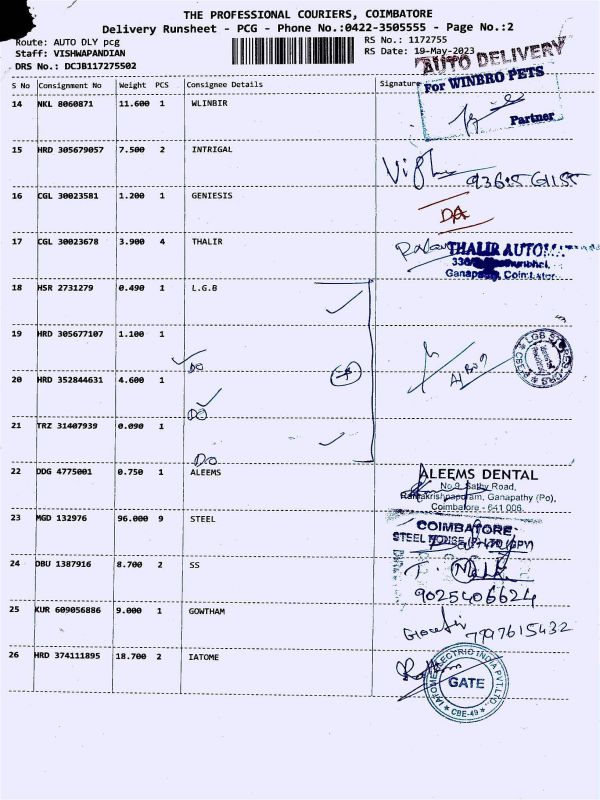 THE PROFESSIONAL COURIERS, COIMBATORE
Delivery Runsheet - PCG - Phone No.:0422-3505555 - Page No.:2
Route: AUTO DLY pcg
RS No.: 1172755
Staff: VISHWAPANDIAN
RS Date: 19-May-2023
DRS No.: DCJB117275502
AUTO DELIVERY
S No Consignment No Weight PCS Consignee Details Signature
For WINBRO PETS
14 NKL 8060871 11.600 1 WLINBIR
Partner
15 HRD 305679057 7.500 2 INTRIGAL
16 CGL 30023581 1.200 1 GENIESIS
DA
17 CGL 30023678 3.900 4 THALIR
THALIR AUTOM
Ganapathy, Coimbatore
18 HSR 2731279 0.490 1 L.G.B
19 HRD 305677107 1.100 1
DO
LGB STORES
20 HRD 352844631 4.600 1
DO
21 TRZ 31407939 0.090 1
DO
22 DDG 4775001 0.750 1 ALEEMS
ALEEMS DENTAL
No.9, Sathy Road,
Ramakrishnapuram, Ganapathy (Po),
Coimbatore - 641 006.
23 MGD 132976 96.000 9 STEEL
COIMBATORE
STEEL HOUSE (P) LTD (GPY)
24 DBU 1387916 8.700 2 SS
9025406624
25 KUR 609056886 9.000 1 GOWTHAM
7997615432
26 HRD 374111895 18.700 2 IATOME
IATOME ELECTRIC INDIA PVT.LTD.,
GATE
CBE-49